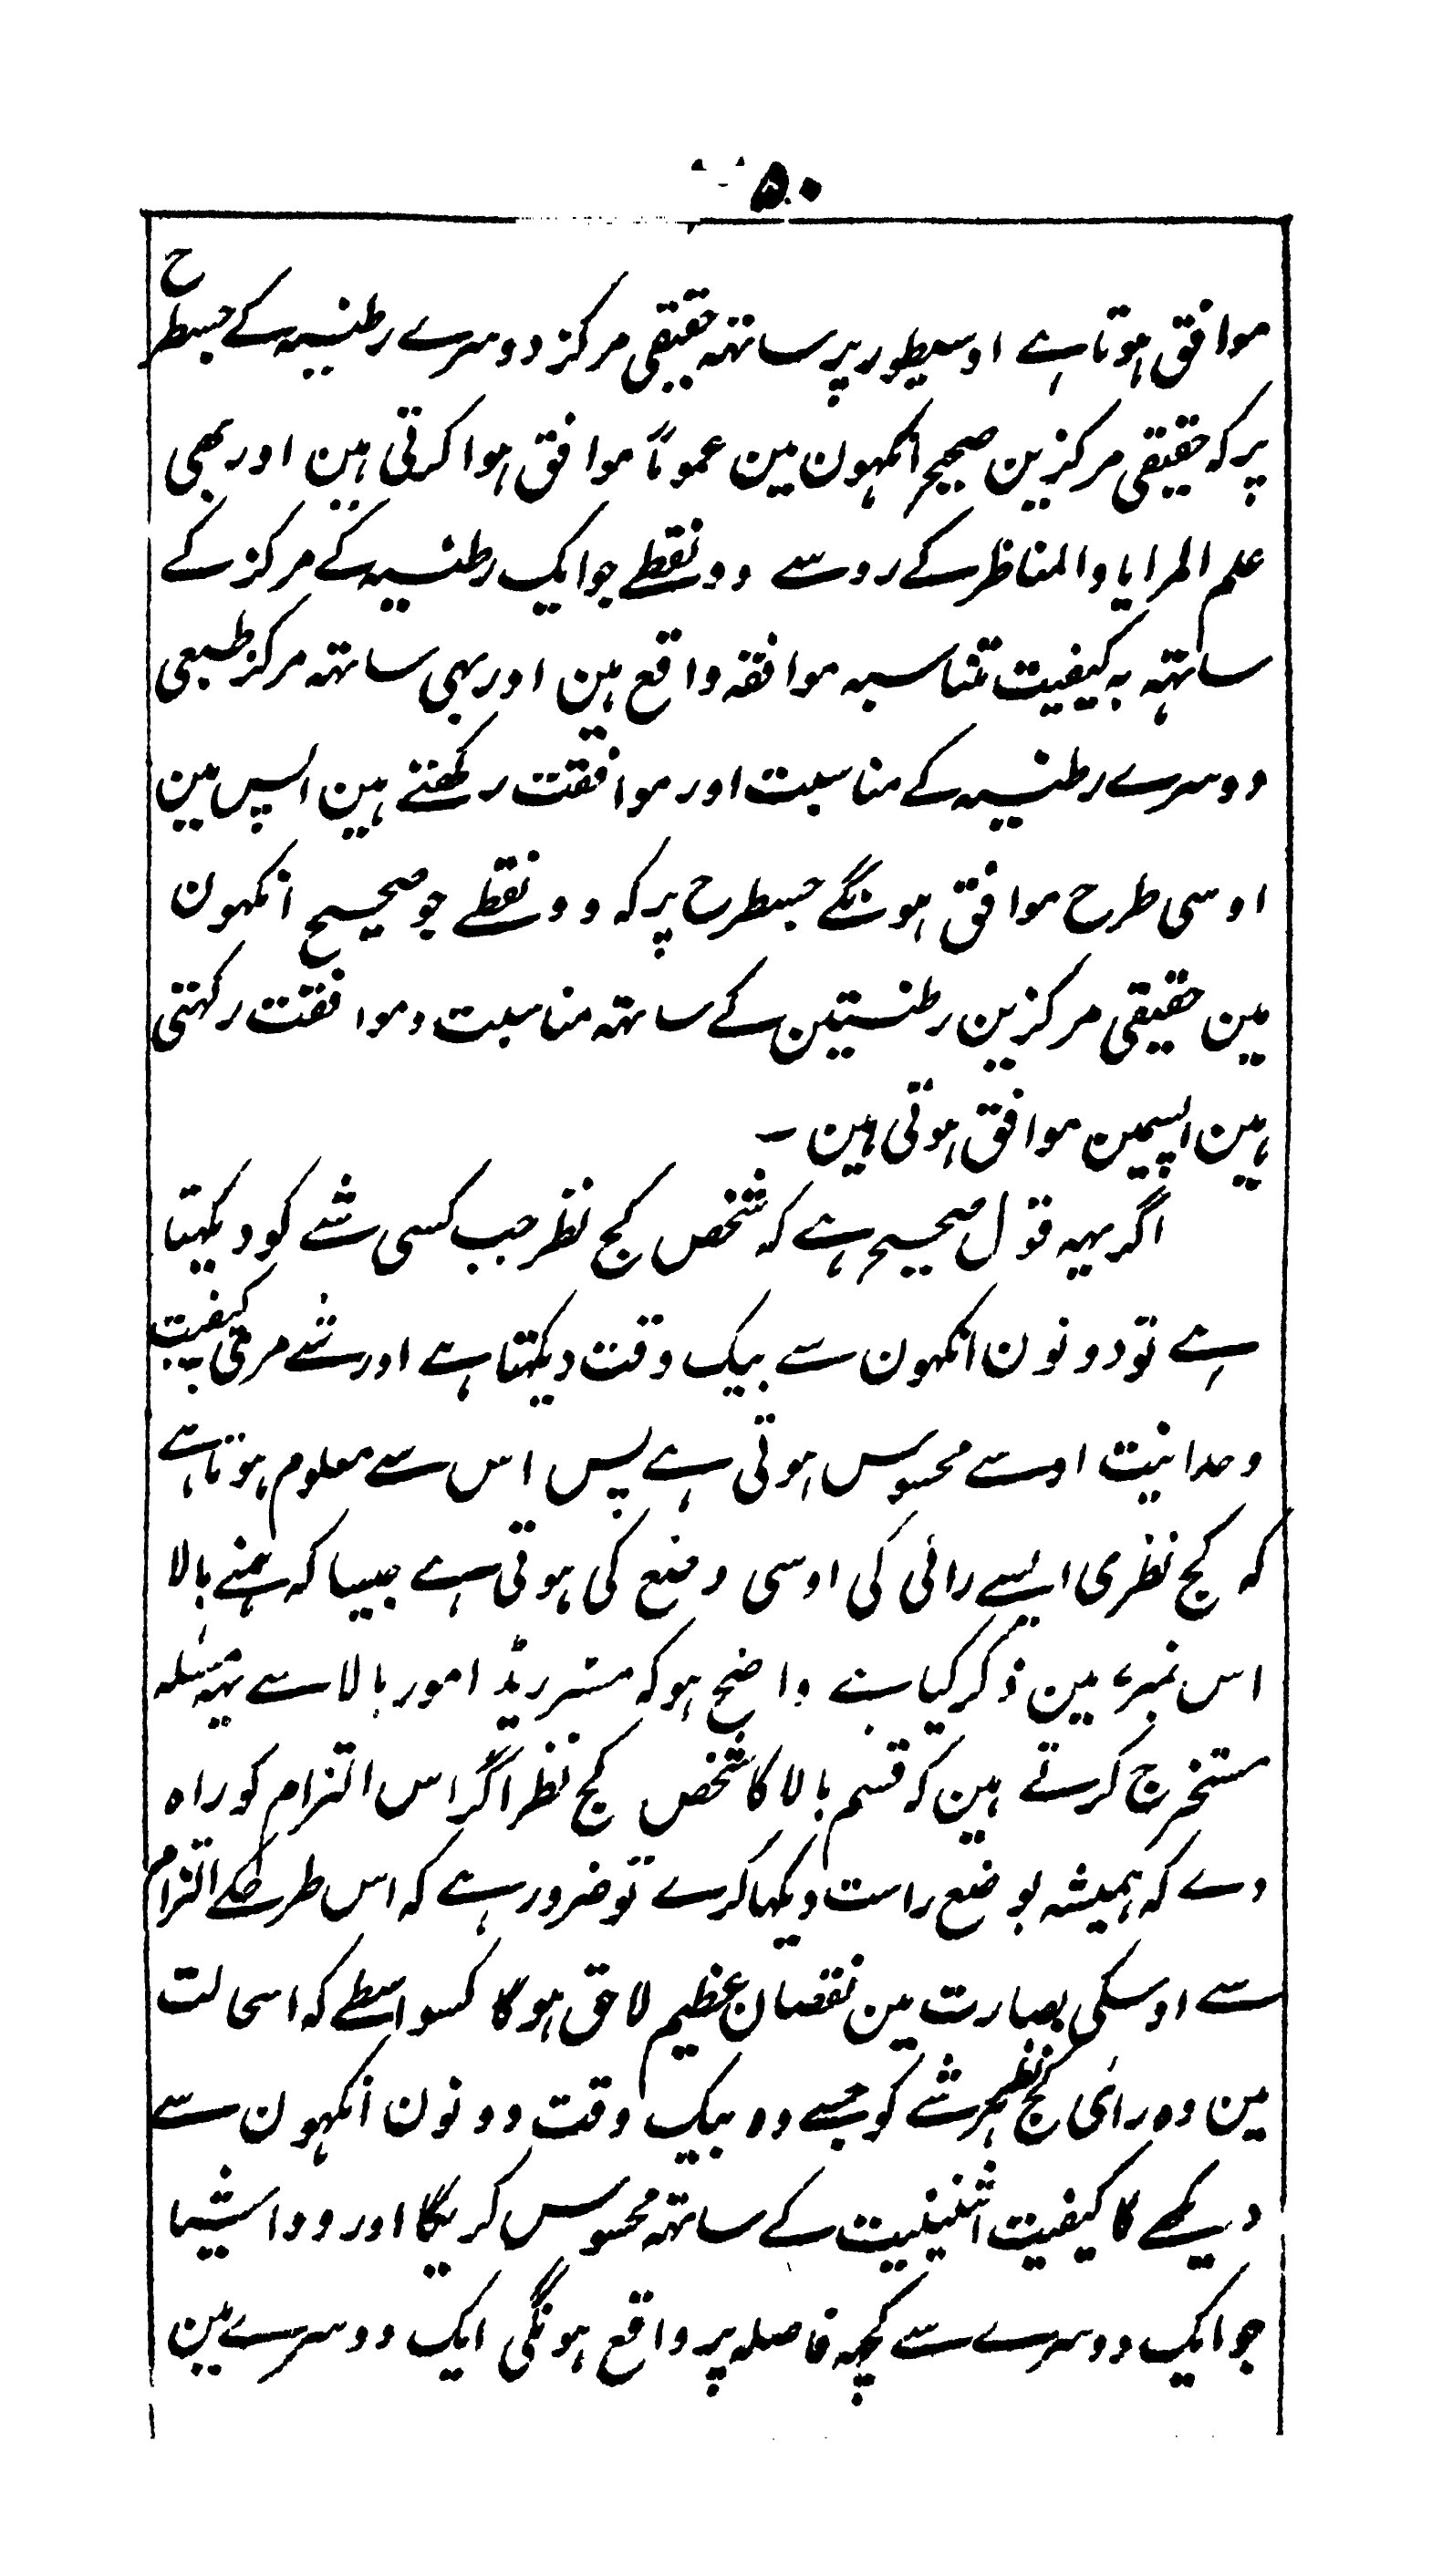 ۵۰
موافق ہوتا ہے اوسیطور پر ساتہہ حقیقی مرکز دوسرے رطنیہ کے جسطرح
پر کہ حقیقی مرکزین صحیح انکہون مین عموماً موافق ہوا کرتی ہین اور بھی
علم المرایا والمناظر کے رو سے دو نقطے جو ایک رطنیہ کے مرکز کے
ساتہہ بہ کیفیت تناسبہ موافقہ واقع ہین اور بہی ساتہہ مرکز طبعی
دوسرے رطنیہ کے مناسبت اور موافقت رکھتے ہین اپس مین
اوسی طرح موافق ہونگے جسطرح پر کہ دو نقطے جو صحیح انکہون
مین حقیقی مرکزین رطنیتین کے ساتہہ مناسبت و موافقت رکہتی
ہین اپسمین موافق ہوتی ہین ۔
اگر یہہ قول صحیح ہے کہ شخص کج نظر جب کسی شے کو دیکہتا
ہے تو دونون انکہون سے بیک وقت دیکہتا ہے اور شے مرئی بکیفیت
وحدانیت اوسے محسوس ہوتی ہے پس اس سے معلوم ہوتا ہے
کہ کج نظری ایسے رائی کی اوسی وضع کی ہوتی ہے جیسا کہ ہمنے بالا
اس نمبر مین ذکر کیا ہے واضح ہو کہ مسٹر ریڈ امور بالا سے یہہ مسٔلہ
مستخرج کرتے ہین کہ قسم بالا کا شخص کج نظر اگر اس التزام کو راہ
دے کہ ہمیشہ بوضع راست دیکہا کرے تو ضرور ہے کہ اس طرحکے التزام
سے اوسکی بصارت مین نقصان عظیم لاحق ہوگا کسواسطے کہ اسحالت
مین وہ رائی کج نظر ہر شے کو جسے وہ بیک وقت دونون انکہون سے
دیکھے گا کیفیت اثنینیت کے ساتہہ محسوس کریگا اور دو اشیا
جو ایک دوسرے سے کچہہ فاصلہ پر واقع ہونگی ایک دوسرے مین